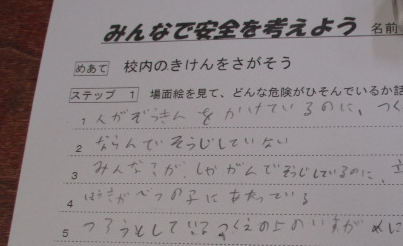 みんなで安全を考えよう 名前
めあて 校内のきけんをさがそう
ステップ 1 場面絵を見て、どんな危険がひそんでいるか話
1 人がぞうきんをかけているのに、つく
2 ならんでそうじしていない
3 みんなが、しゃがんでそうじしているのに、
4 ほうきがべつの子にあたっている
5 つろうとしているつくえの上のいすが